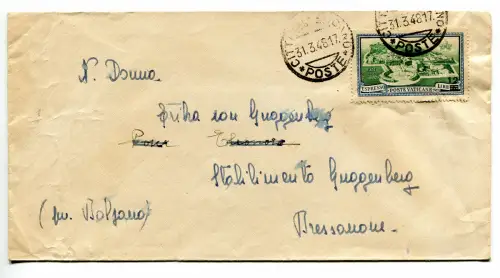 CITTA DEL VATICANO
31.3.48 17.
*POSTE*
31.3.48 17.
*POSTE*
12
ESPRESSO POSTE VATICANE LIRE
N. Donna
Erika von Guggenberg
Eleonora
Stabilimento Guggenberg
(pr. Bolzano)
Bressanone